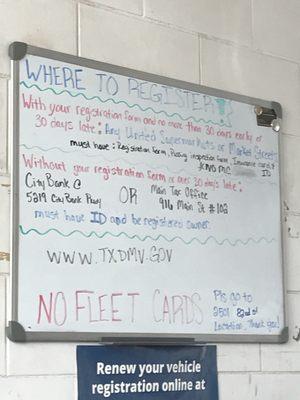 WHERE TO REGISTER
With your registration form and no more than 30 days early or
30 days late: Any United Supermarkets or Market Street
must have: Registration Form, Passing inspection form, Insurance card & ID
Without your registration form or over 30 days late:
City Bank @
5219 City Bank Pkwy
OR
Main Tax Office
916 Main St #102
must have ID and be registered owner.
WWW.TXDMV.GOV
NO FLEET CARDS
Pls go to
2501 82nd st
Location, Thank you!
Renew your vehicle
registration online at